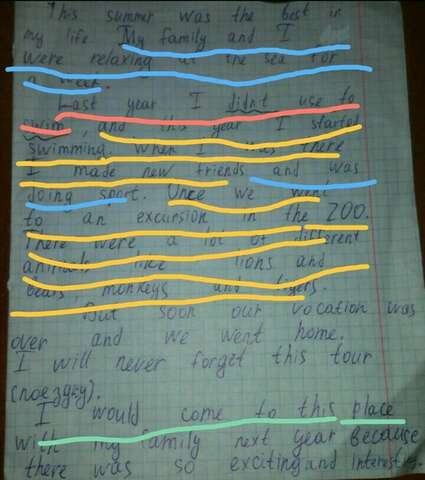 This summer was the best in
my life. My family and I
were relaxing at the sea for
a week.
Last year I didnt use to
swim, and this year I started
swimming. When I was there
I made new friends and was
doing sport. Once we went
to an excursion in the ZOO.
There were a lot of different
animals like lions and
bears, monkeys and tigers.
But soon our vocation was
over and we went home.
I will never forget this tour
(поездку).
I would come to this place
with my family next year because
there was so exciting and interesting.